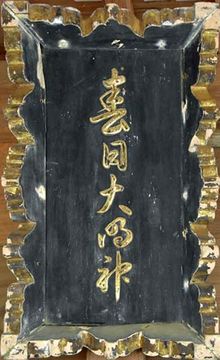 春日大明神